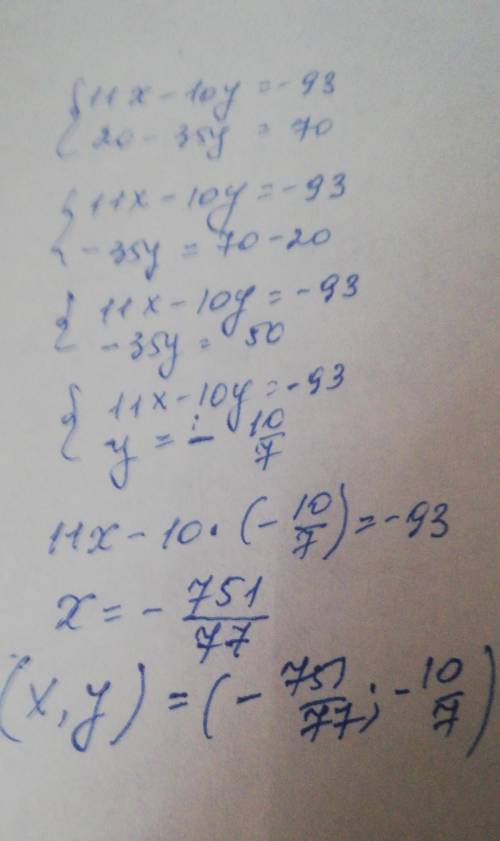 { 11x - 10y = -93
20 - 35y = 70
{ 11x - 10y = -93
-35y = 70 - 20
{ 11x - 10y = -93
-35y = 50
{ 11x - 10y = -93
y = - 10/7
11x - 10 · (- 10/7) = -93
x = - 751/77
(x, y) = (- 751/77; - 10/7)